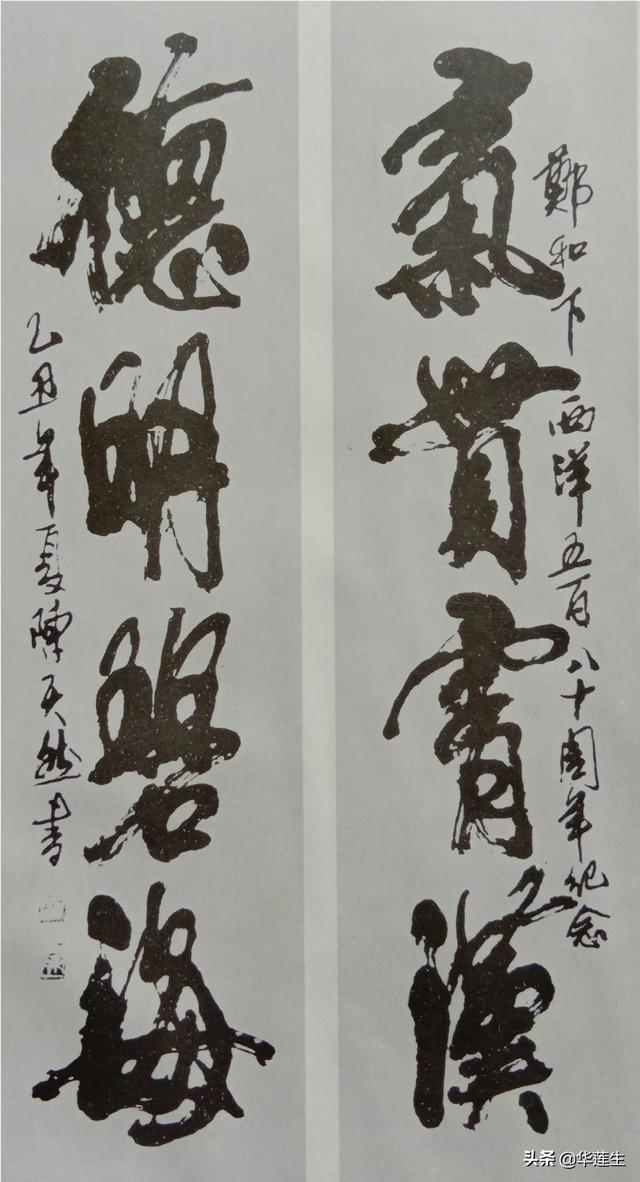 鄭和下西洋五百八十周年纪念
氣貫霄漢
德明碧海
乙丑年夏陳天然書
头条 @华莲生